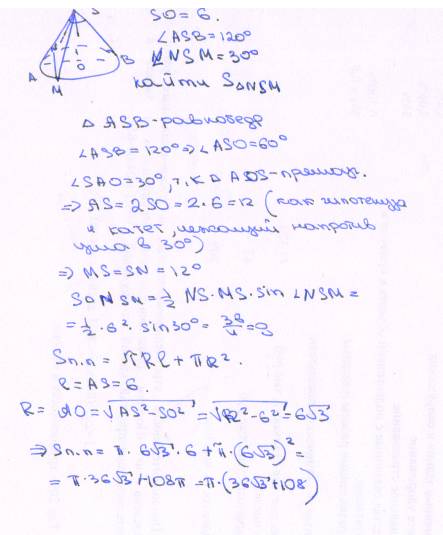 S
SO = 6.
∠ASB = 120°
∠NSM = 30°
найти S△NSM
A
B
O
M
△ ASB - равнобедр
∠ASB = 120° ⇒ ∠ASO = 60°
∠SAO = 30°, т.к △ AOS - прямоуг.
⇒ AS = 2SO = 2·6 = 12 (как гипотенуза
и катет, лежащий напротив
угла в 30°)
⇒ MS = SN = 12°
S△NSM = 1/2 NS·MS·sin ∠NSM =
= 1/2·6²·sin30° = 36/4 = 9
Sп.п = πRl + πR².
l = AS = 6.
R = AO = √(AS² - SO²) = √(12² - 6²) = 6√3
⇒ Sп.п = π·6√3·6 + π·(6√3)² =
= π·36√3 + 108π = π·(36√3 + 108)